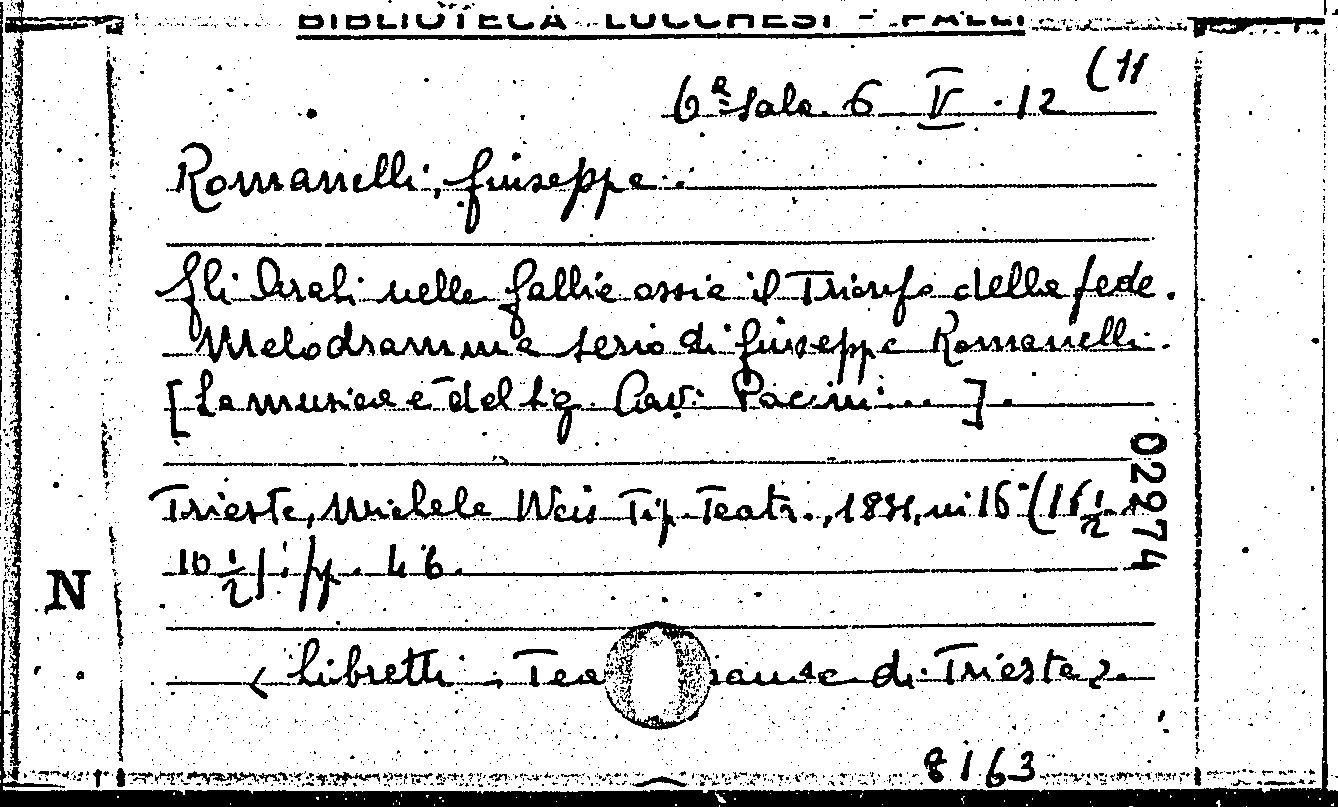 BIBLIOTECA LUCCHESI - PALLI
6ª Sala. 6 V. 12 (11
Romanelli, Giuseppe.
Gli Arabi nelle Gallie ossia il Trionfo della fede.
Melodramma serio di Giuseppe Romanelli.
[La musica è del Sig. Cav. Pacini...].
Trieste, Michele Weis Tip. Teatr., 1831, in 16° (16 1/2 x
10 1/2). pp. 46.
(Libretti. Tea di Trieste).
02274
N
8163